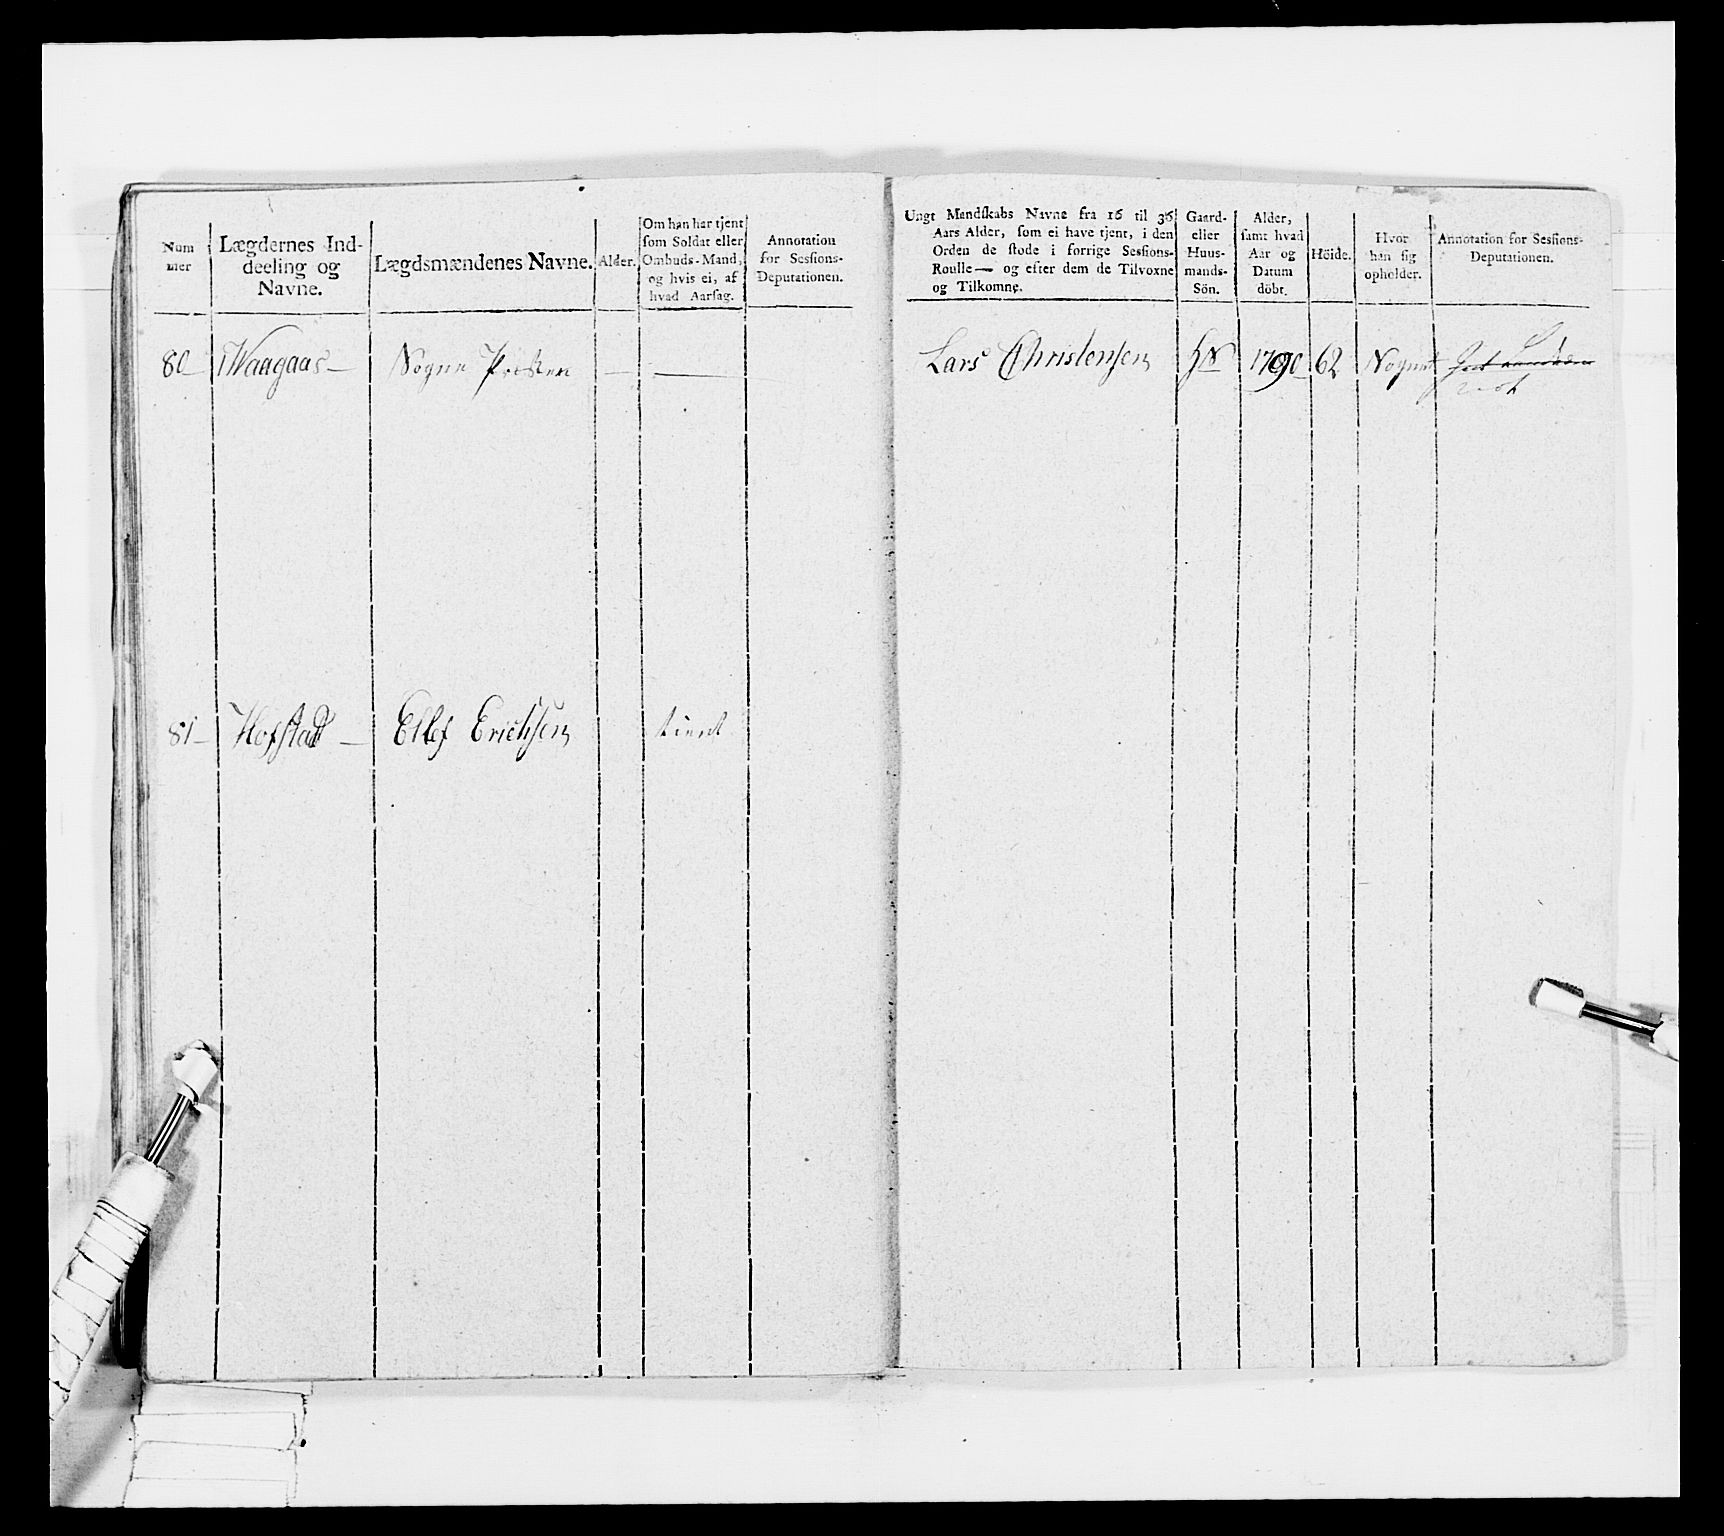 Num
mer
Lægdernes Ind-
deeling og
Navne.
Lægdsmændenes Navne.
Alder.
Om han har tjent
som Soldat eller
Ombuds-Mand,
og hvis ei, af
hvad Aarsag.
Annotation
for Sessions-
Deputationen.
Ungt Mandskabs Navne fra 16 til 36
Aars Alder, som ei have tjent, i den
Orden de stode i forrige Sessions-
Roulle — og efter dem de Tilvoxne
og Tilkomne.
Gaard-
eller
Huus-
mands-
Sön.
Alder,
samt hvad
Aar og
Datum
döbt.
Höide.
Hvor
han sig
opholder.
Annotation for Sessions-
Deputationen.
80 Waagaas — Sogne Præsten — — Lars Christensen 1790 62
81 — Hofstad — Ellef Erichsen tient